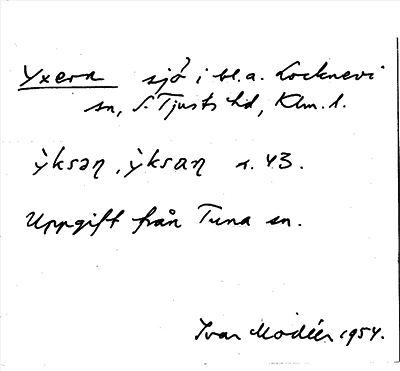 Yxern sjö i bl.a. Locknevi
sn, S. Tjusts hd, Klm. l.
ỳksəɳ, ỳksaɳ s. 43.
Uppgift från Tuna sn.
Ivar Modéer 1954.